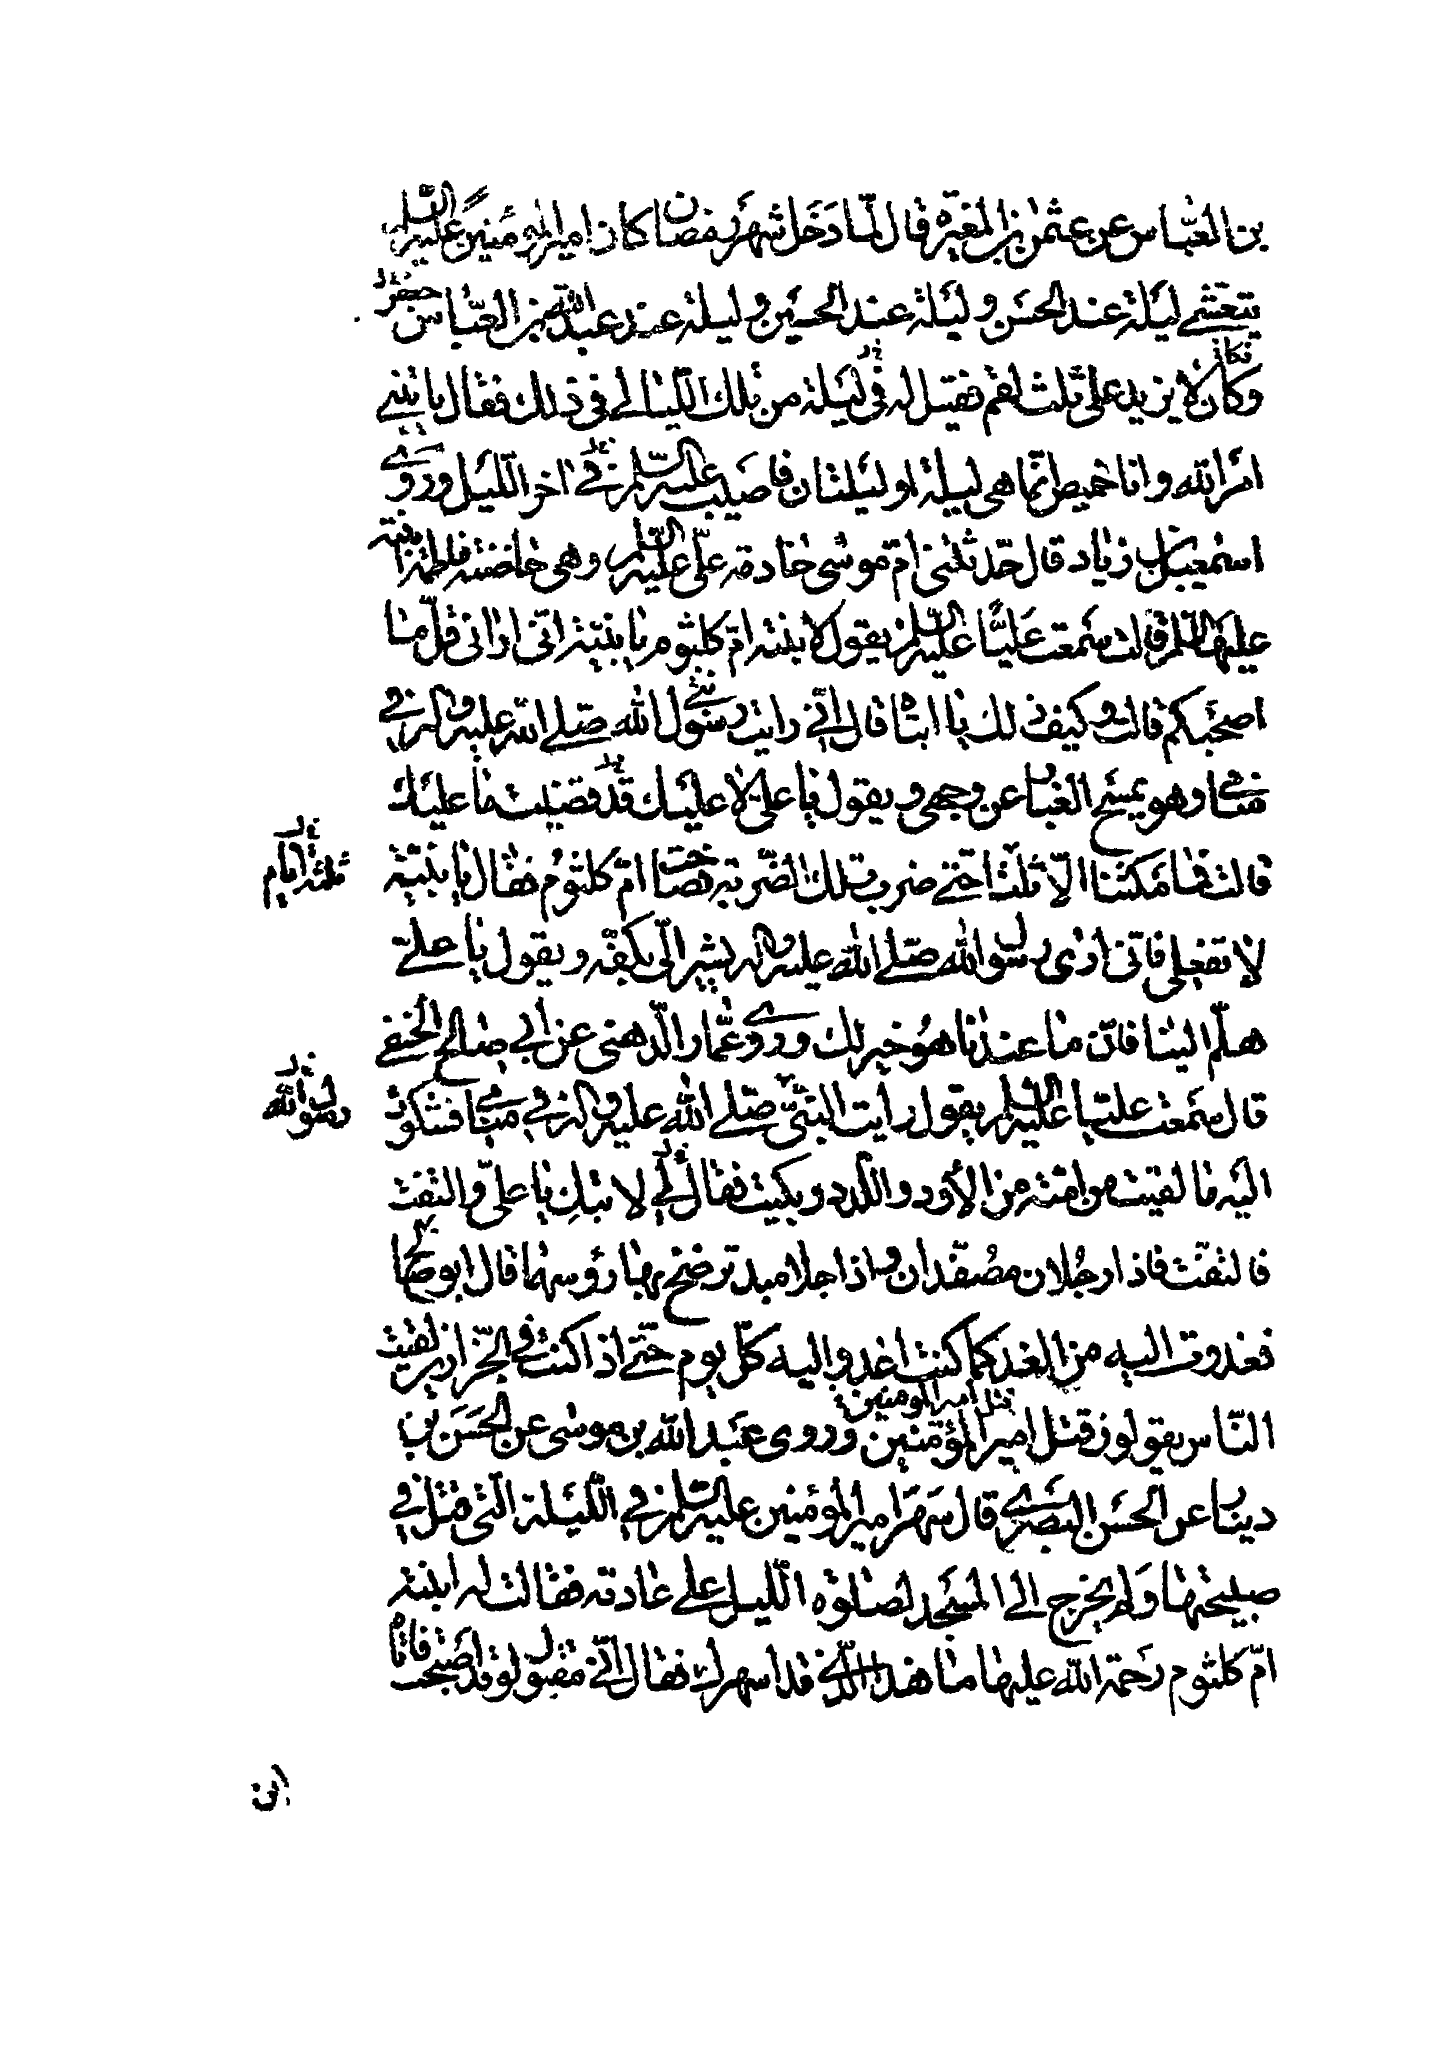 بن العباس عن عثمن بن المغيره قال لما دخل شهر رمضان كان امير المؤمنين عليه السلم
يتعشى ليلة عند الحسن وليلة عند الحسين وليلة عند عبد الله بن العباس جعفر خ ل
وكان لا يزيد على ثلث لقم فقيل له في ليلة من تلك الليالي في ذلك فقال يا بني
فكان
امر الله وانا خميص انما هى ليلة او ليلتان فاصيب عليه السلم في اخر الليل وروى
اسمعيل بن زياد قال حدثتنى ام موسى خادمة على عليه السلم وهى حاضنة فاطمة ابنته
عليها السلم قالت سمعت عليّا عليه السلم يقول لابنته ام كلثوم يا بنيّة انى ارانى قلّ ما
اصحبكم قالت وكيف ذلك يا ابتاه قال انّي رايت رسول الله صلى الله عليه واله في
منامي وهو يمسح الغبار عن وجهى ويقول يا على لا عليك قد قضيت ما عليك
قالت فما مكثنا الّا ثلثا حتى ضرب تلك الضربة فصاحت ام كلثوم فقال يا بنيّة
ثلثة ايام خ ل
لا تفعلى فانى ارى رسول الله صلى الله عليه واله يشير الىّ بكفّه ويقول يا علىّ
هلمّ الينا فانّ ما عندنا هو خير لك وروى عمّار الدهنى عن ابي صالح الحنفى
قال سمعت عليّا عليه السلم يقول رايت النبىّ صلى الله عليه واله في منامي فشكوت
رسول الله خ ل
اليه ما لقيت من امته من الأود واللدد وبكيت فقال لي لا تبك يا علىّ والتفت
فالتفتّ فاذا رجلان مصفّدان واذا جلاميد ترضخ بها رؤسهما قال ابو صالح
فغدوت اليه من الغد كما كنت اغدو اليه كلّ يوم حتى اذا كنت في الجزّارين لقيت
النّاس يقولون قتل امير المؤمنين وروى عبد الله بن موسى عن الحسن بن
قتل امير المومنين
دينار عن الحسن البصرى قال سهر امير المؤمنين عليه السلم في الليلة التى قتل في
صبيحتها ولم يخرج الى المسجد لصلوة الليل على عادته فقالت له ابنته
امّ كلثوم رحمة الله عليها ما هذا الذى قد اسهرك فقال انّي مقتول لو قد اصبحت فاتاه
ابن